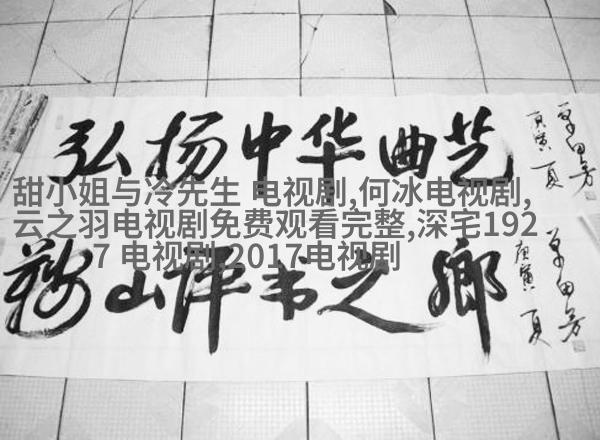 弘扬中华曲艺
庚寅夏 单田芳
甜小姐与冷先生 电视剧,何冰电视剧,
云之羽电视剧免费观看完整,深宅192
7 电视剧,2017电视剧
鞍山评书之鄉
庚寅夏 单田芳